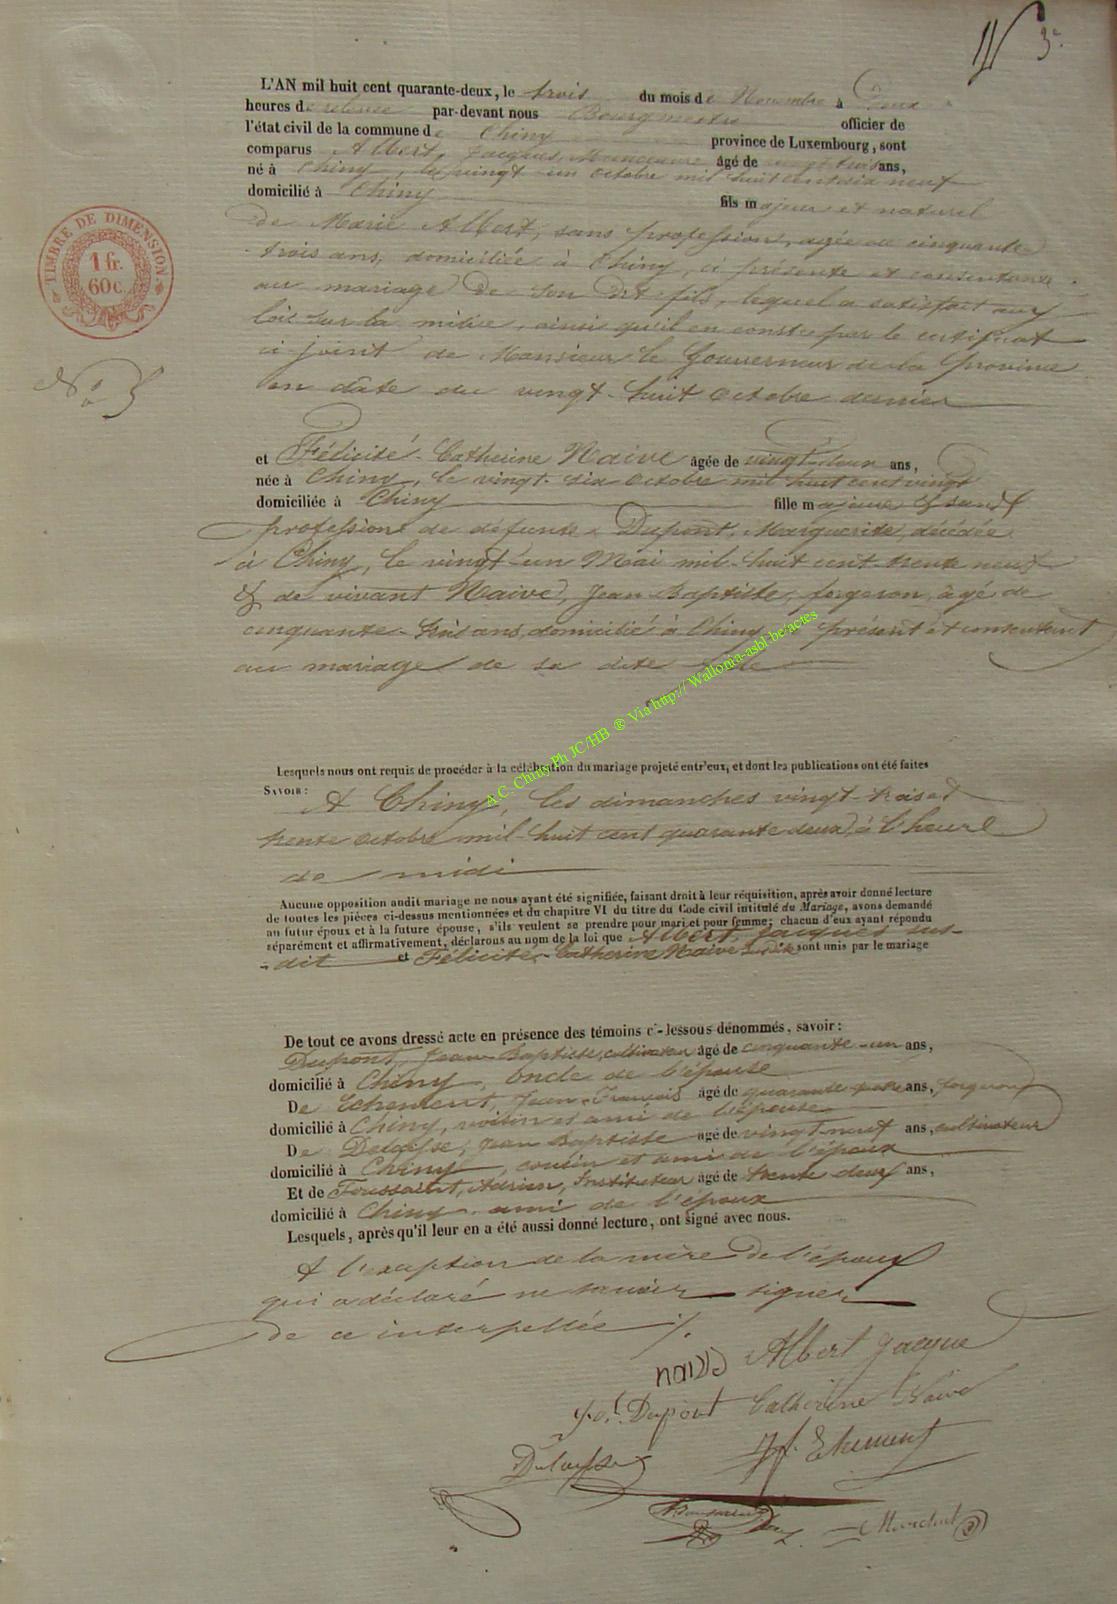 3e
L'AN mil huit cent quarante-deux, le trois du mois de Novembre à deux
heures de relevée par-devant nous Bourgmestre officier de
l'état civil de la commune de Chiny province de Luxembourg, sont
comparus Albert, Jacques, âgé de vingt trois ans,
né à Chiny, le vingt un octobre mil huit cent dix neuf
domicilié à Chiny fils majeur et naturel
de Marie Albert, sans profession, agée de cinquante
trois ans, domiciliée à Chiny, ci présente et consentante
au mariage de son dit fils, lequel a satisfait aux
lois sur la milice, ainsi qu'il en conste par le certificat
ci-joint de Monsieur le Gouverneur de la province
en date du vingt-huit octobre dernier
TIMBRE DE DIMENSION
1 fr.
60 c.
No 5
et Félicité-Catherine Naive âgée de vingt-deux ans,
née à Chiny, le vingt-six octobre mil huit cent vingt
domiciliée à Chiny fille majeure & sans
profession de défunte Dupont, Marguerite, décédée
à Chiny, le vingt-un Mai mil-huit cent-trente neuf
& de vivant Naive, Jean Baptiste, forgeron, âgé de
cinquante- ans, domicilié à Chiny présent et consentant
au mariage de sa dite fille
A.C. Chiny Ph JC/HB ® Via http:// Wallonia-asbl.be/actes
Lesquels nous ont requis de procéder à la célébration du mariage projeté entr'eux, et dont les publications ont été faites
SAVOIR: A Chiny, les dimanches vingt-trois et
trente octobre mil-huit cent quarante deux, à l'heure
de midi
Aucune opposition audit mariage ne nous ayant été signifiée, faisant droit à leur réquisition, après avoir donné lecture
de toutes les pièces ci-dessus mentionnées et du chapitre VI du titre du Code civil intitulé du Mariage, avons demandé
au futur époux et à la future épouse, s'ils veulent se prendre pour mari et pour femme; chacun d'eux ayant répondu
séparément et affirmativement, déclarons au nom de la loi que Albert, Jacques sus-
-dit et Félicité-Catherine Naive sont unis par le mariage
De tout ce avons dressé acte en présence des témoins ci-dessous dénommés, savoir:
Dupont, Jean-Baptiste, cultivateur âgé de cinquante-un ans,
domicilié à Chiny, oncle de l'épouse
De Echement, Jean-François âgé de quarante ans, forgeron
domicilié à Chiny, voisin et ami de l'épouse
De Delaisse, Jean Baptiste âgé de vingt-neuf ans, cultivateur
domicilié à Chiny, cousin et ami de l'époux
Et de Toussaint, Adrien, Instituteur âgé de trente deux ans,
domicilié à Chiny, ami de l'époux
Lesquels, après qu'il leur en a été aussi donné lecture, ont signé avec nous.
A l'exception de la mère de l'époux
qui a déclaré ne savoir signer
de ce interpellée ./.
naive Albert Jacque
Dupont Catherine Naive
Delaisse Jf. Echement